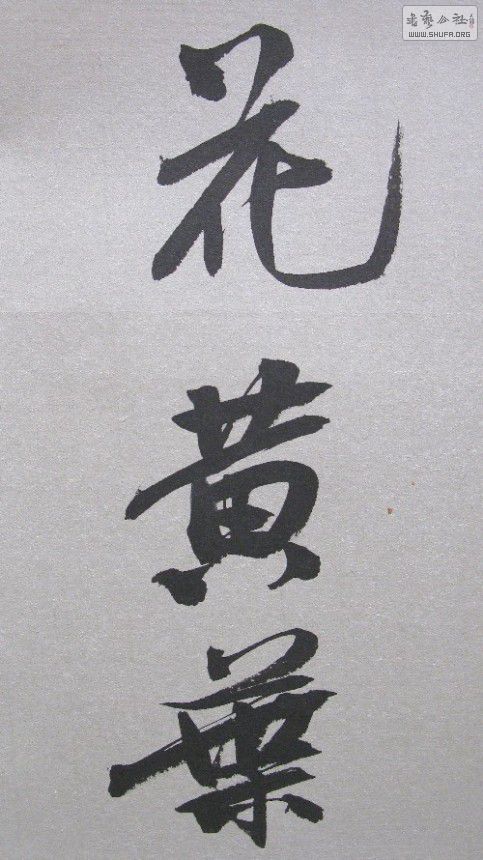 花黄葉
书艺公社
WWW.SHUFA.ORG